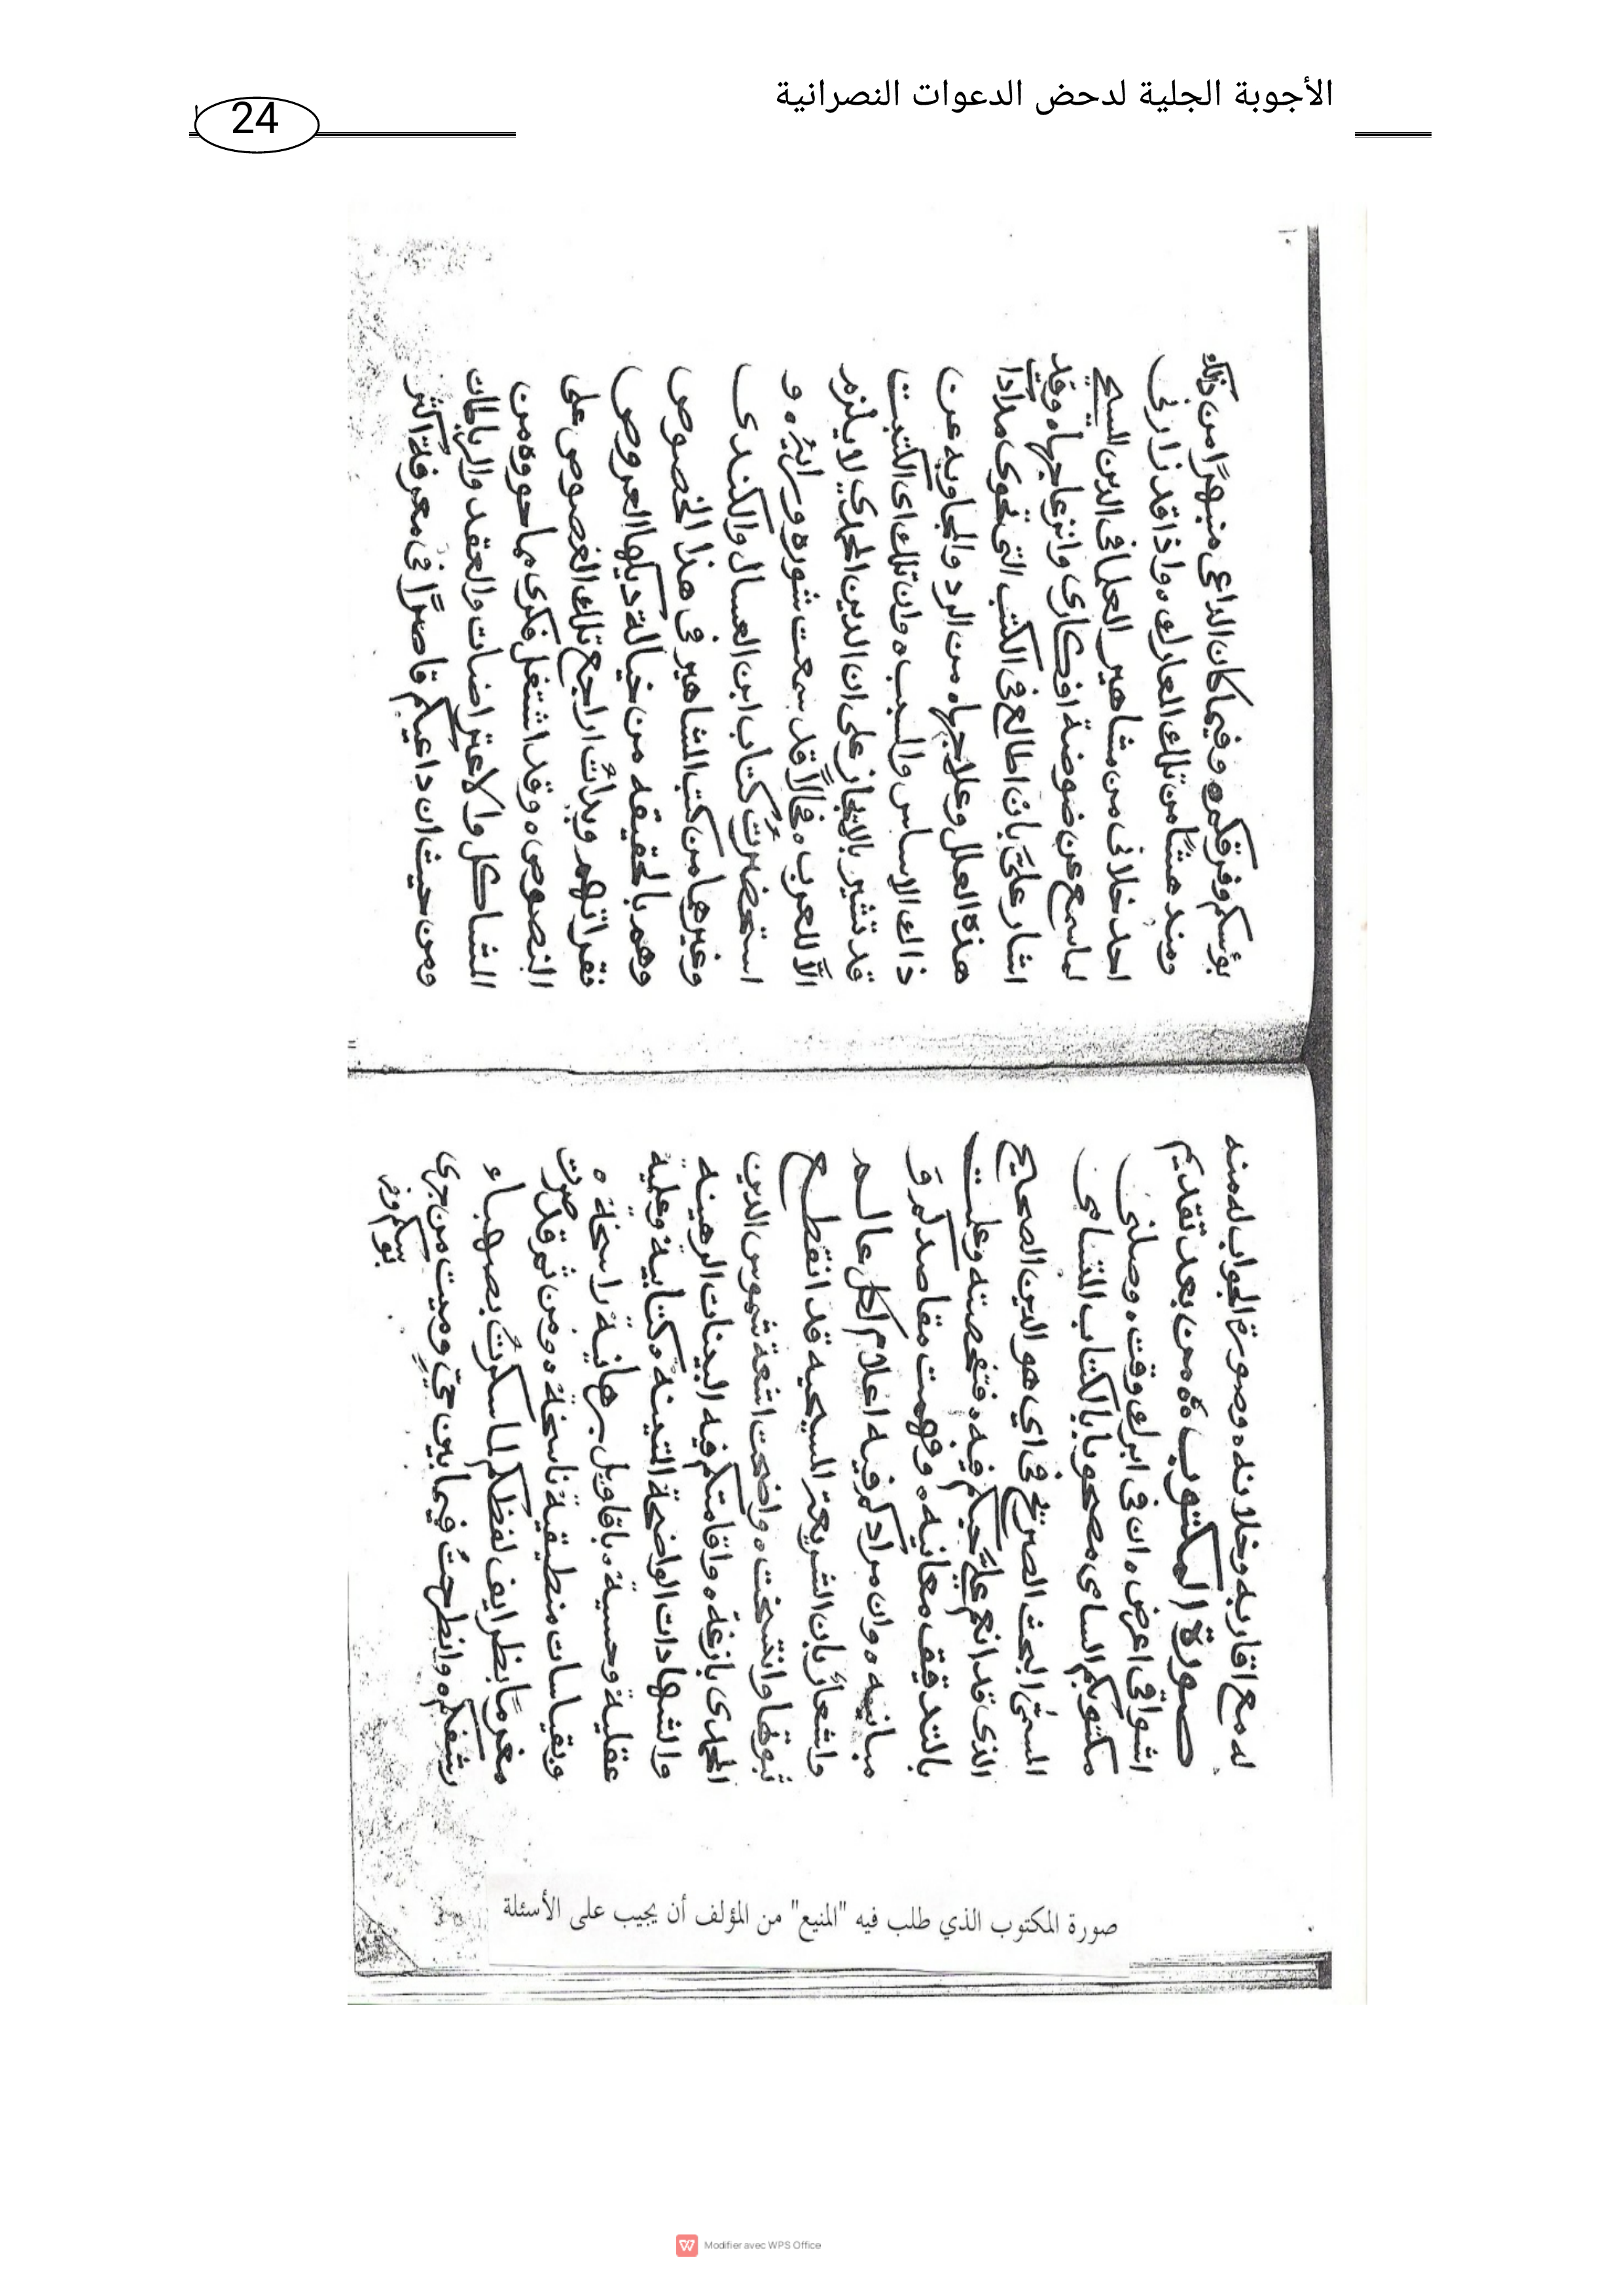 الأجوبة الجلية لدحض الدعوات النصرانية
24
له مع اقاربه وخلانه وصورة الجواب له منه
صورة المكتوب من بعد تقديم
اشواقي اعرض ان في ابرك وقت وصلني
مكتوبكم السامي مصحوبا بالكتاب المتسامي
المسمى البحث الصريح في اي هو الدين الصحيح
الذي قد انعم عليَّ محبكم فيه فتفحصته وعليت
بالتدقيق معانيه وفهمت مقاصدكم و
مبانيه وان مرادكم فيه اعلام لكل عالم
واشعار بان الشريعة المسيحيه قد انقطع
ثبوتها وانتسخت واضحت اشعة شموس الدين
المحمدي بازغة واقامتكم فيه البينات الرهينه
والشهادات الواضحة المتينه كتابية وعلمية
عقلية وحسية باقاويل برهانية راسخة
وبقياسات منطيقية ناسخة ومن ثم قد صرت
مغرمًا بظرايف لفظكم لما سكرتُ بصهباء
رشفكم وانطرحتُ فيما بين حيّ وميت من جرى
بؤسكم وفر
بؤسكم وفرقكم وفيما كان الداعي منبهرًا من ذلك
ومندهشًا من تلك المعارك واذا قد زارني
احد خلاني من مشاهير العلما في الدين المسيحي
لما سمع عن ضوضة افكاري وانزعاجها وقد
اشار عليَّ بان اطالع في الكتب التي تحوي مدادا
هذه العلل وعلاجها من الرد والمجاوبه عن
ذالك الاساس والسبب وان تلك اي الكتب
قد تشير بالايجاز على ان الدين المحمدي لا يلزم
الاَّ للعرب فحالاً قد سمعت شوره ورايهُ و
استحضرتُ كتاب ابن العسال والكندي
وغيرها من كتب المشاهير في هذا الخصوص
وهم بالحقيقه من خيالة
وبداتُ اراجع تلك على
النصوص وقد اشتغل فكري مما حووه من
المشاكل والاعتراضات والعقد والرباطات
ومن حيث ان داعيكم قاصرًا في معرفة اكثر
صورة المكتوب الذي طلب فيه "المنيع" من المؤلف أن يجيب على الأسئلة
Modifier avec WPS Office